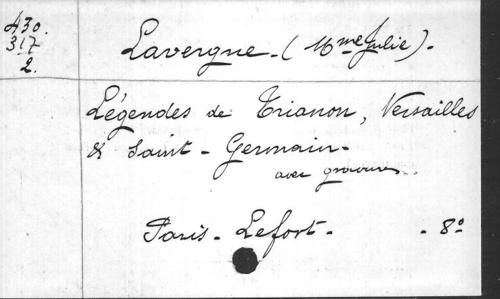 430.
317
2.
Lavergne. (Mme Julie).
Légendes de Trianon, Versailles
& Saint-Germain-
avec gravures.
Paris - Lefort - - 8°